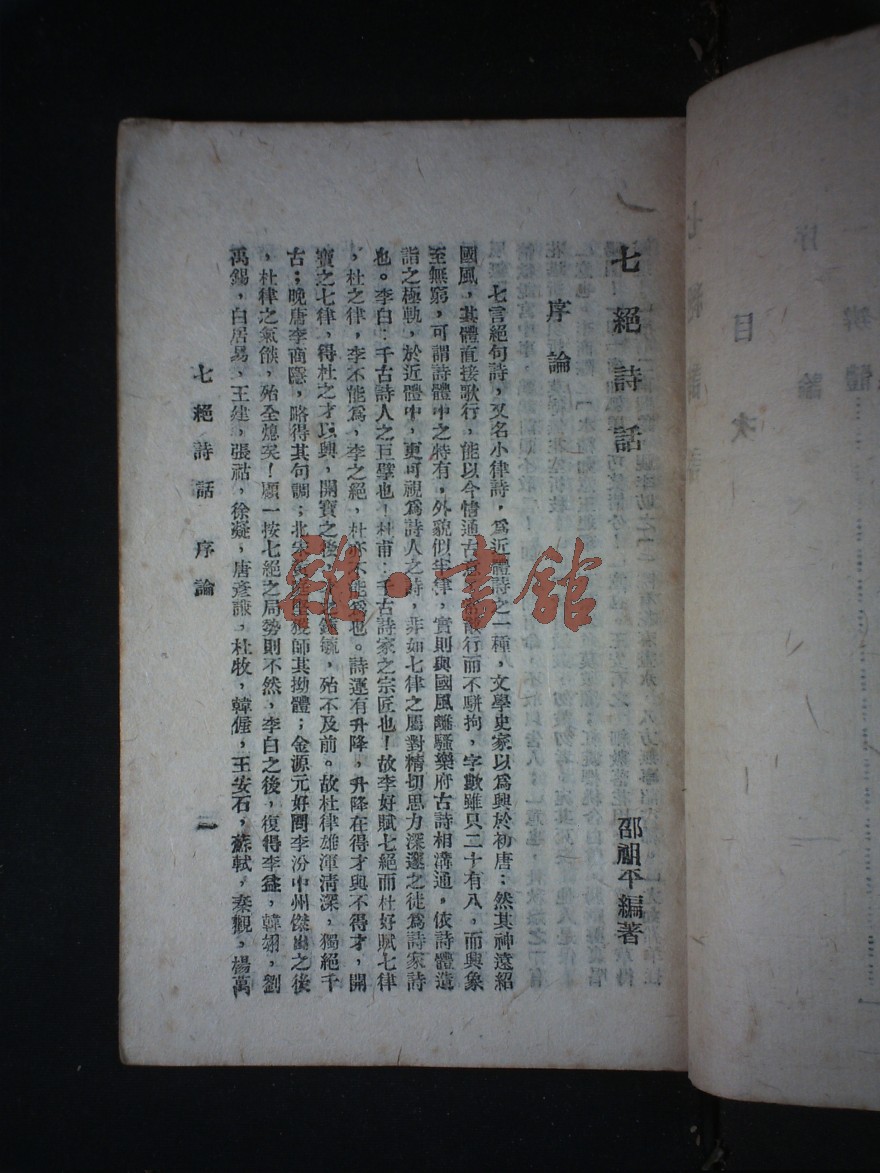 七絕詩話
邵祖平編著
序論
七言絕句詩，又名小律詩，爲近體詩之一種，文學史家以爲興於初唐；然其神遠紹
國風，其體直接歌行，能以今情通古意，散行而不駢拘，字數雖只二十有八，而興象
至無窮，可謂詩體中之特有，外貌似半律，實則與國風離騷樂府古詩相溝通。依詩體造
詣之極軌，於近體中，更可視爲詩人之詩，非如七律之屬對精切思力深邃之徒爲詩家詩
也。李白：千古詩人之巨擘也！杜甫：千古詩家之宗匠也！故李好賦七絕而杜好賦七律
，杜之律，李不能爲，李之絕，杜亦不能爲也。詩運有升降，升降在得才與不得才，開
寶之七律，得杜之才以興，開寶之後，鍾毓，殆不及前。故杜律雄渾清深，獨絕千
古；晚唐李商隱，略得其句調；北宋黃庭堅獲師其拗體；金源元好問李汾中州傑出之後
，杜律之氣燄，殆全熄矣！願一按七絕之局勢則不然，李白之後，復得李益，韓翃，劉
禹錫，白居易，王建，張祜，徐凝，唐彥謙，杜牧，韓偓，王安石，蘇軾，秦觀，楊萬
七絕詩話 序論
一
雜·書館
目次
序論